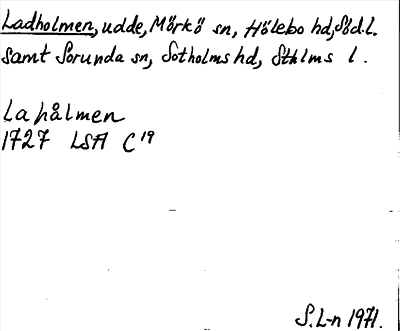 Ladholmen, udde, Mörkö sn, Hölebo hd, Söd.l.
samt Sorunda sn, Sotholms hd, Sthlms l.
Lahålmen
1727 LSA C19
S.L-n 1971.